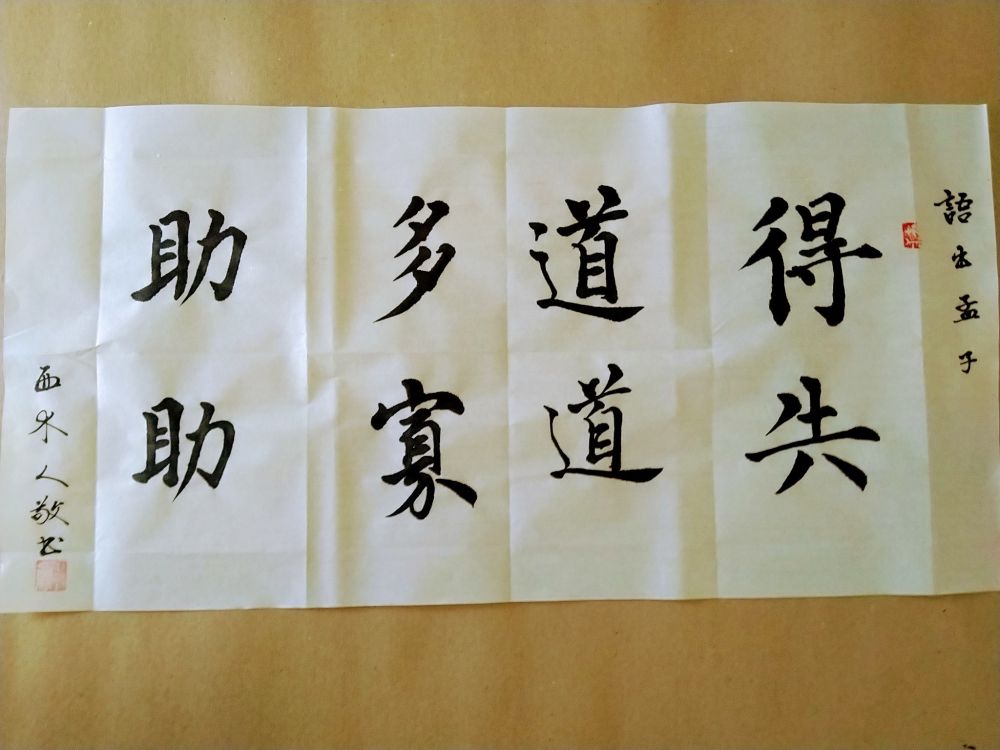 語出孟子
得道多助
失道寡助
西木人敬书